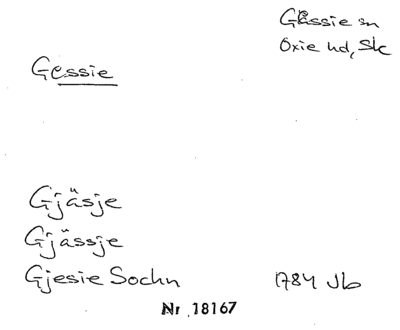 Gessie sn
Oxie hd, Sk
Gessie
Gjäsje
Gjässje
Gjesie Sochn 1784 Jb
Nr 18167